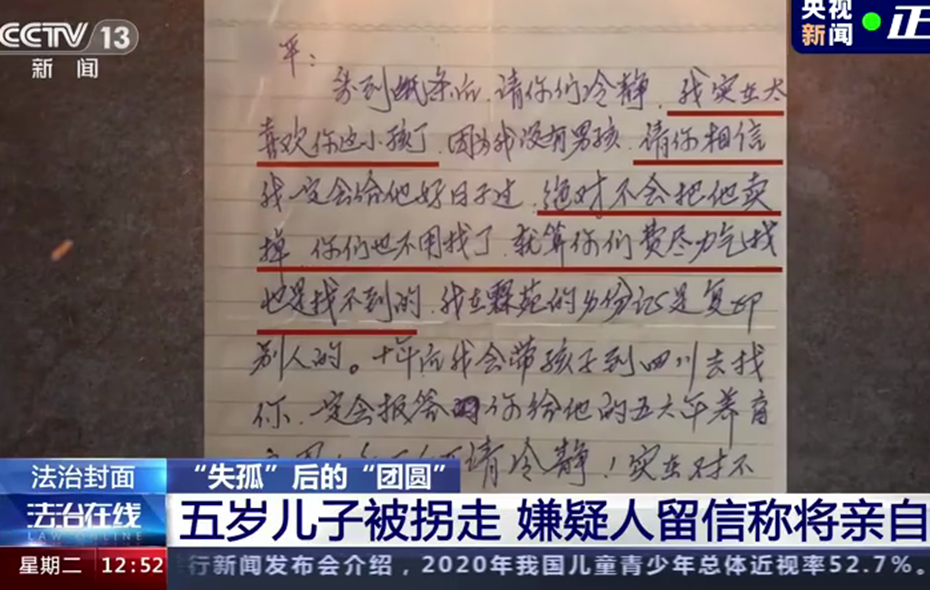 CCTV 13
新闻
央视
新闻
正
平：
亲到纸条后，请你们冷静，我实在太
喜欢你这小孩了，因为我没有男孩，请你相信
我一定会给他好日子过，绝对不会把他卖
掉，你们也不用找了，就算你们费尽力气找
也是找不到的，我在霖苑的身份记是复印
别人的。十年后我会带孩子到四川去找
你，一定会报答你给他的五六年养育
请冷静！实在对不
法治封面
“失孤”后的“团圆”
法治在线
LAW ONLINE
五岁儿子被拐走 嫌疑人留信称将亲自
星期二 12:52
行新闻发布会介绍，2020年我国儿童青少年总体近视率52.7%。